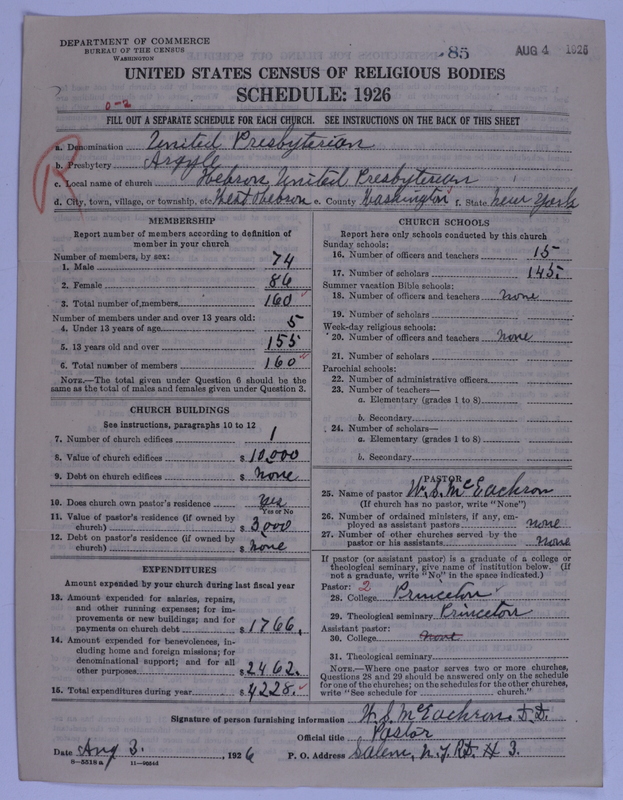 DEPARTMENT OF COMMERCE
BUREAU OF THE CENSUS
WASHINGTON
85
AUG 4 1926
UNITED STATES CENSUS OF RELIGIOUS BODIES
SCHEDULE: 1926
0-2
FILL OUT A SEPARATE SCHEDULE FOR EACH CHURCH. SEE INSTRUCTIONS ON THE BACK OF THIS SHEET
R
a. Denomination United Presbyterian
b. Presbytery Argyle
c. Local name of church Hebron United Presbyterian
d. City, town, village, or township, etc. West Hebron e. County Washington f. State New York
MEMBERSHIP
Report number of members according to definition of
member in your church
Number of members, by sex:
1. Male 74
2. Female 86
3. Total number of members 160
Number of members under and over 13 years old:
4. Under 13 years of age 5
5. 13 years old and over 155
6. Total number of members 160
NOTE.—The total given under Question 6 should be the
same as the total of males and females given under Question 3.
CHURCH BUILDINGS
See instructions, paragraphs 10 to 12
7. Number of church edifices 1
8. Value of church edifices $ 10,000
9. Debt on church edifices $ None
10. Does church own pastor's residence Yes
Yes or No
11. Value of pastor's residence (if owned by
church) $ 3,000
12. Debt on pastor's residence (if owned by
church) $ None
EXPENDITURES
Amount expended by your church during last fiscal year
13. Amount expended for salaries, repairs,
and other running expenses; for im-
provements or new buildings; and for
payments on church debt $ 1766.
14. Amount expended for benevolences, in-
cluding home and foreign missions; for
denominational support; and for all
other purposes $ 2462.
15. Total expenditures during year $ 4228.
CHURCH SCHOOLS
Report here only schools conducted by this church
Sunday schools:
16. Number of officers and teachers 15
17. Number of scholars 145
Summer vacation Bible schools:
18. Number of officers and teachers none
19. Number of scholars
Week-day religious schools:
20. Number of officers and teachers none
21. Number of scholars
Parochial schools:
22. Number of administrative officers
23. Number of teachers—
a. Elementary (grades 1 to 8)
b. Secondary
24. Number of scholars—
a. Elementary (grades 1 to 8)
b. Secondary
PASTOR
25. Name of pastor W. S. McEachron
(If church has no pastor, write "None")
26. Number of ordained ministers, if any, em-
ployed as assistant pastors none
27. Number of other churches served by the
pastor or his assistants none
If pastor (or assistant pastor) is a graduate of a college or
theological seminary, give name of institution below. (If
not a graduate, write "No" in the space indicated.)
Pastor: 2
28. College Princeton
29. Theological seminary Princeton
Assistant pastor:
30. College None
31. Theological seminary
NOTE.—Where one pastor serves two or more churches,
Questions 28 and 29 should be answered only on the schedule
for one of the churches; on the schedules for the other churches,
write "See schedule for church."
Signature of person furnishing information W. S. McEachron. D.D.
Official title Pastor
Date Aug 3. , 1926 P. O. Address Salem, N.Y. RD. # 3.
8—5518 a